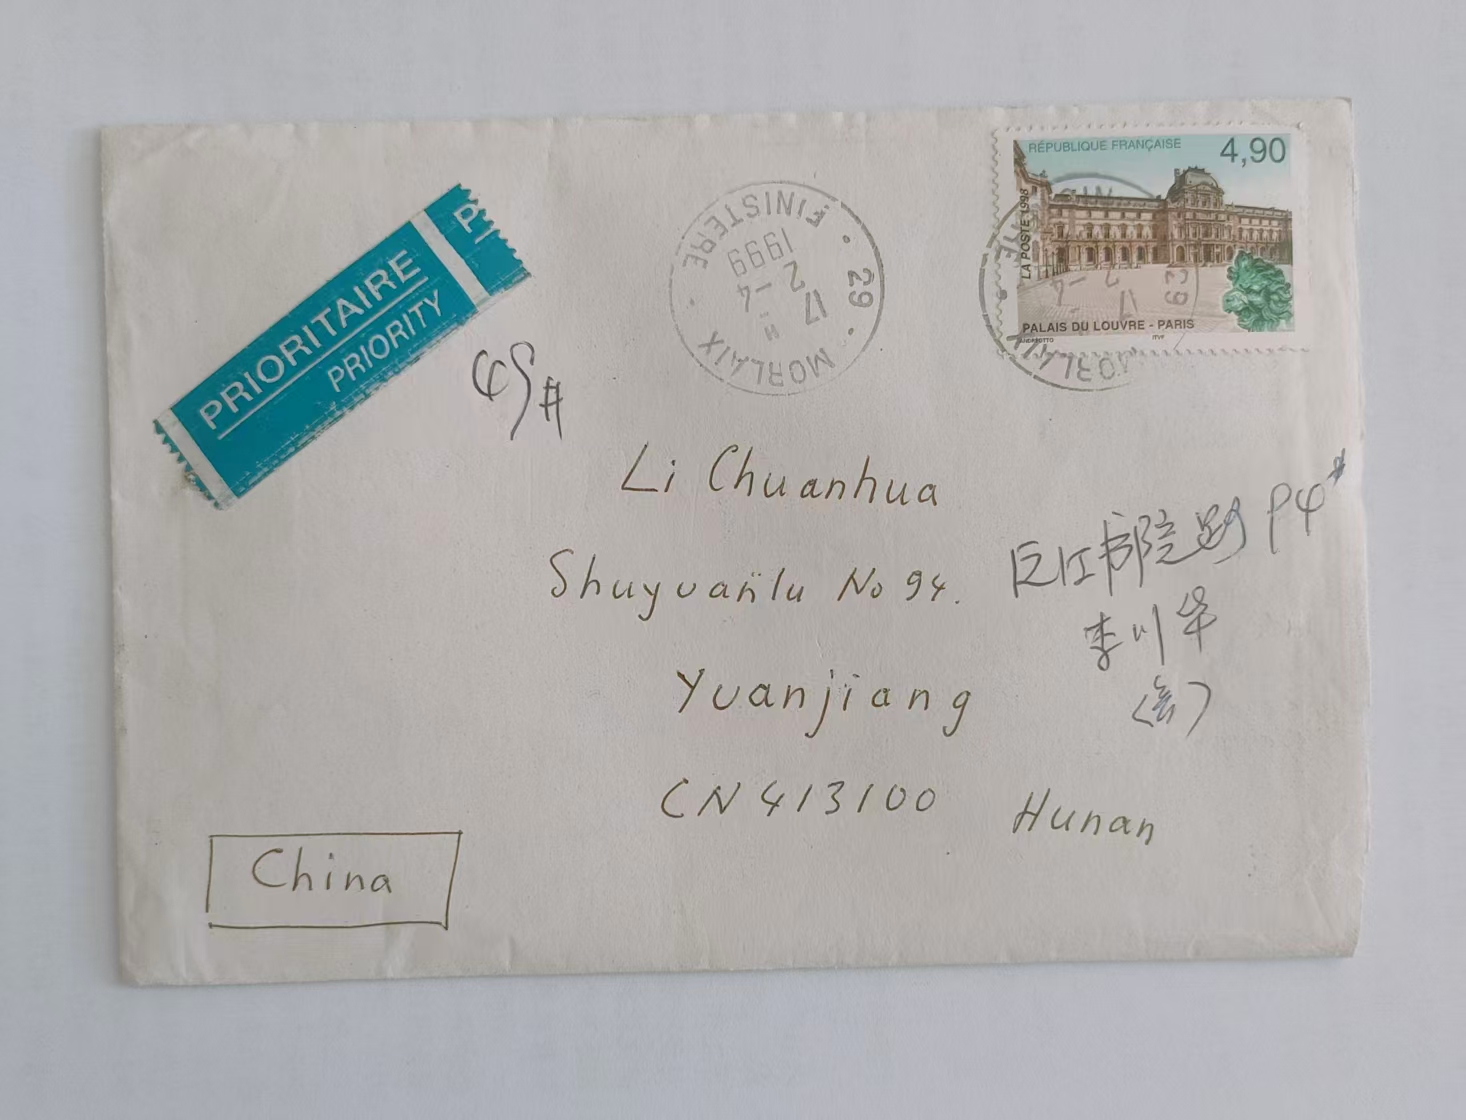 RÉPUBLIQUE FRANÇAISE 4,90
LA POSTE 1998
PALAIS DU LOUVRE - PARIS
ITVF
PRIORITAIRE
PRIORITY
P
29 · MORLAIX · FINISTERE ·
17 H
2 - 4
1999
29 MORLAIX
17
Li Chuanhua
Shuyuanlu No 94.
Yuanjiang
CN 413100 Hunan
China
书院路
李川华